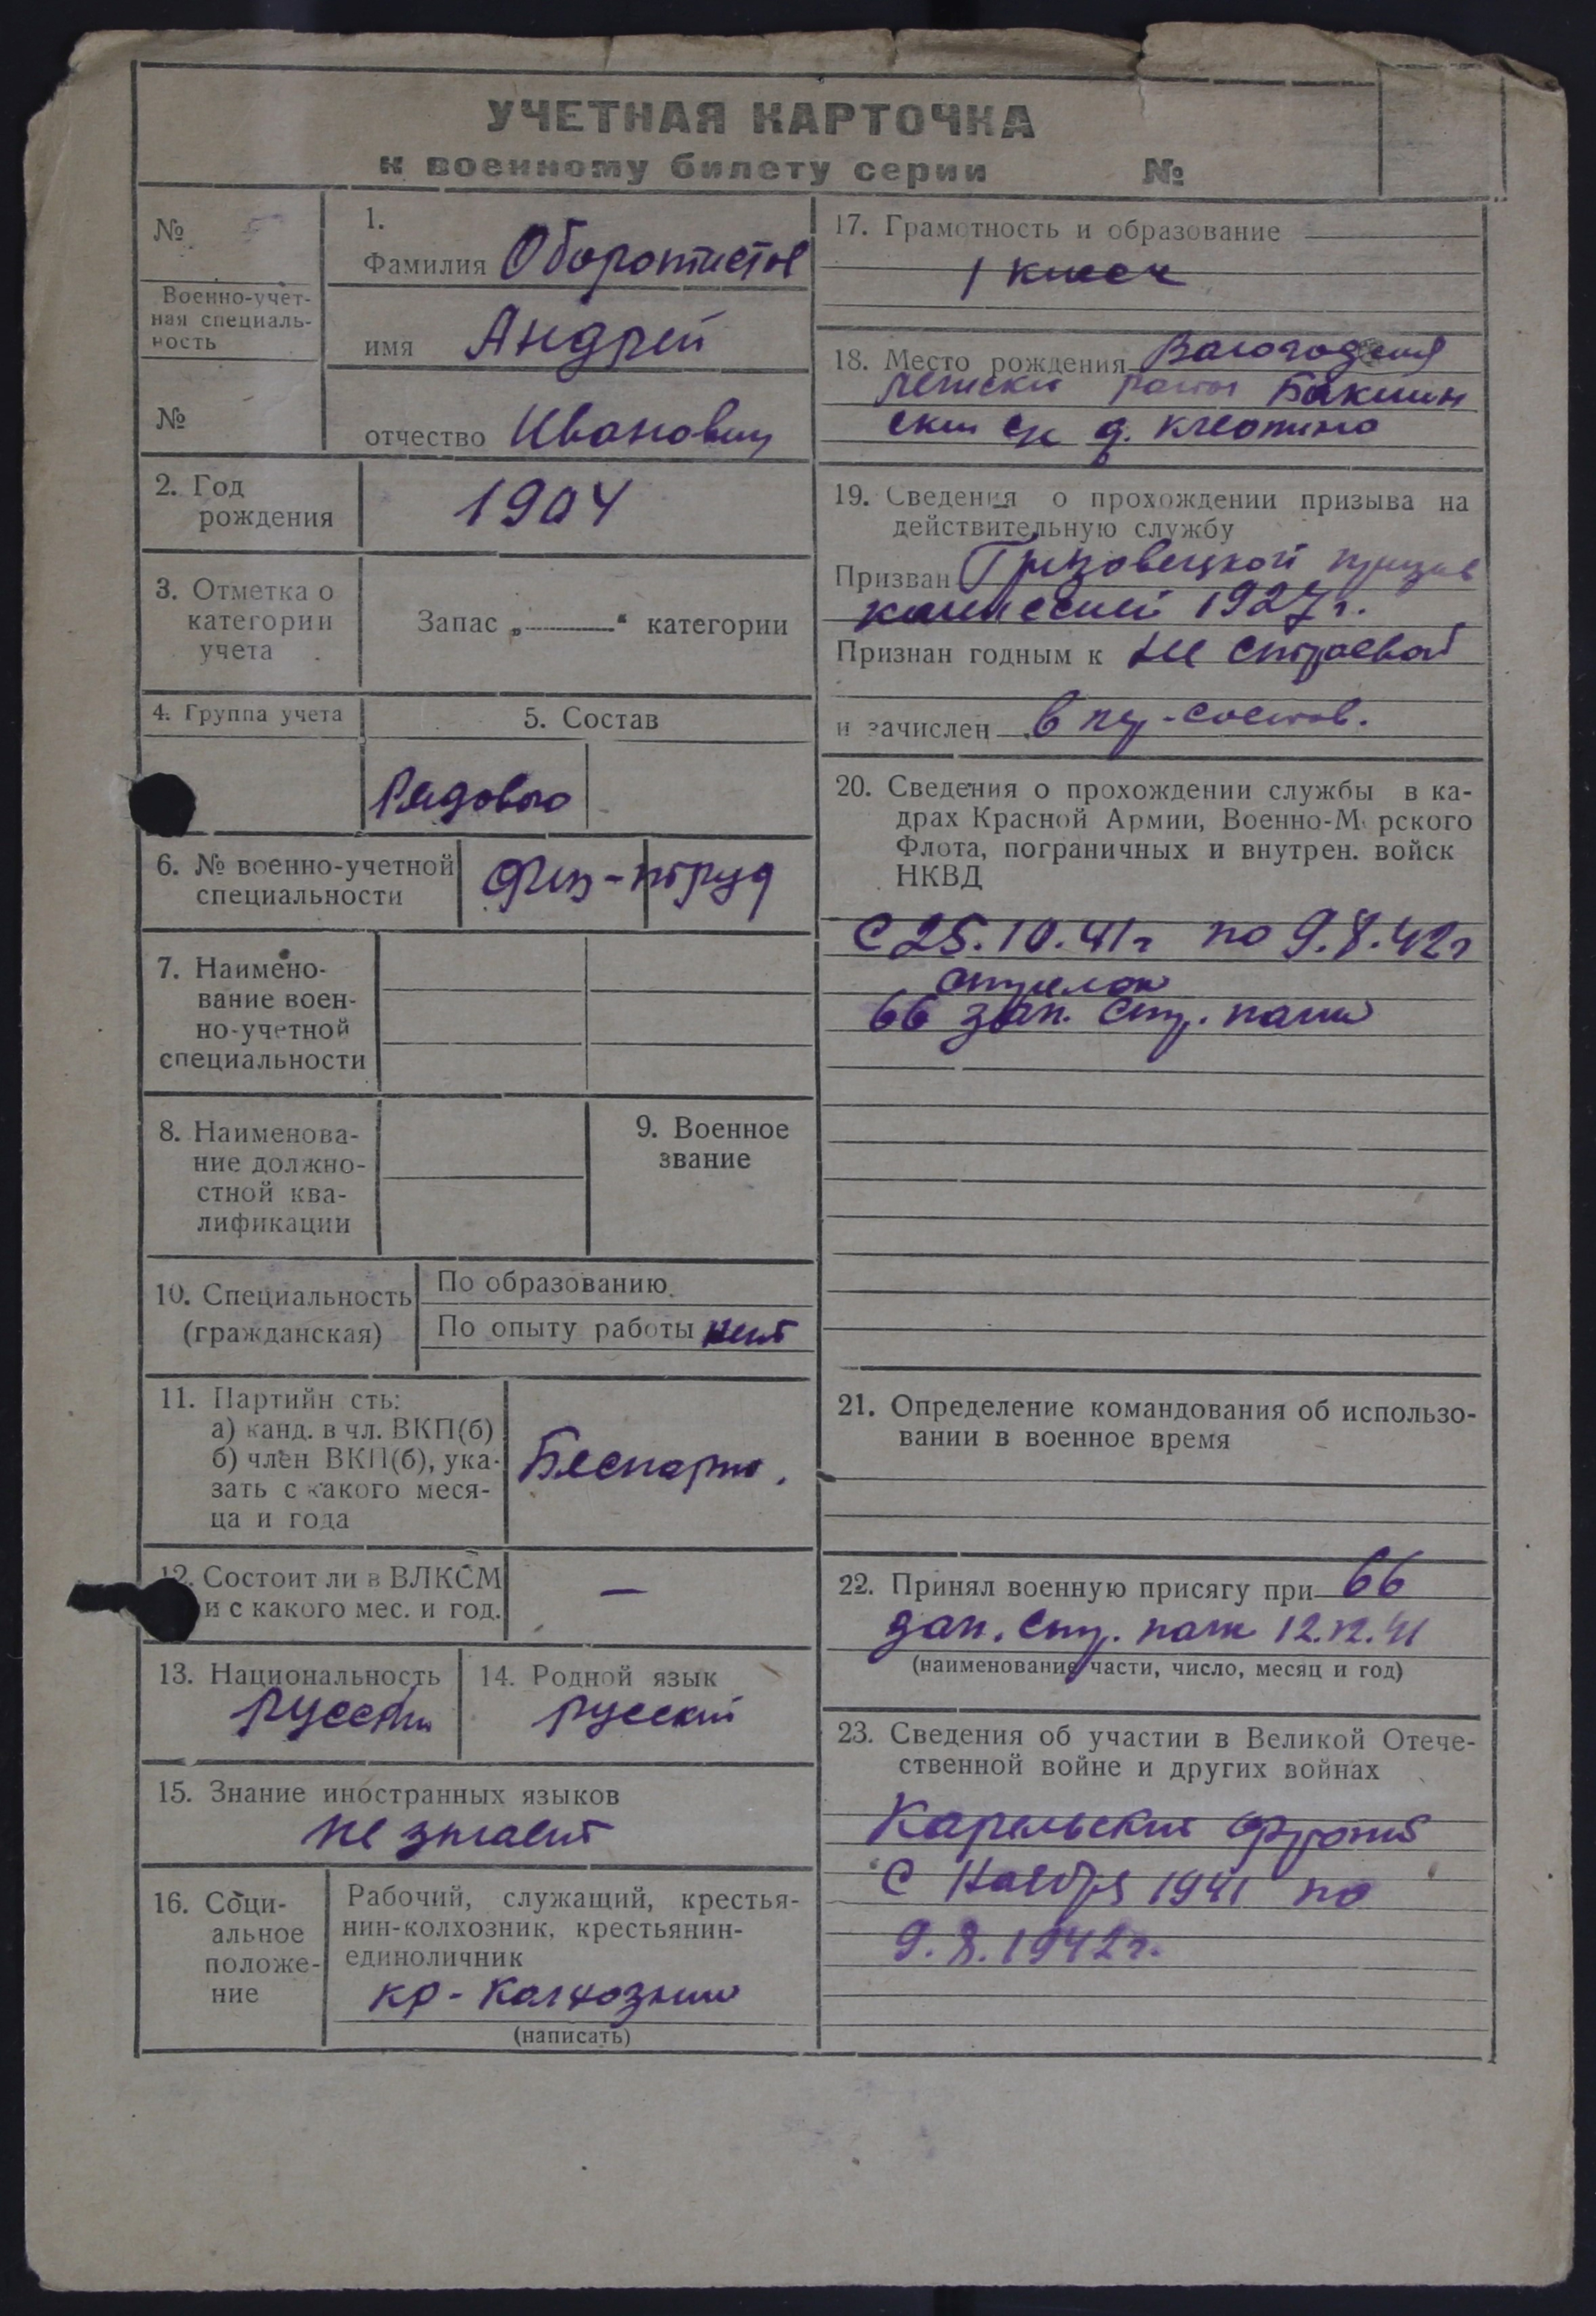 УЧЕТНАЯ КАРТОЧКА
к военному билету серии №
№
Военно-учет-
ная специаль-
ность
№
1.
Фамилия Оборотистов
имя Андрей
отчество Иванович
2. Год
рождения
1904
3. Отметка о
категории
учета
Запас „ “ категории
4. Группа учета
5. Состав
Рядового
6. № военно-учетной
специальности
Физ-труд
7. Наимено-
вание воен-
но-учетной
специальности
8. Наименова-
ние должно-
стной ква-
лификации
9. Военное
звание
10. Специальность
(гражданская)
По образованию
По опыту работы нет
11. Партийн сть:
а) канд. в чл. ВКП(б)
б) член ВКП(б), ука-
зать с какого меся-
ца и года
Беспарт.
12. Состоит ли в ВЛКСМ
и с какого мес. и год.
—
13. Национальность
русский
14. Родной язык
русский
15. Знание иностранных языков
не знает
16. Соци-
альное
положе-
ние
Рабочий, служащий, крестья-
нин-колхозник, крестьянин-
единоличник
кр-колхозник
(написать)
17. Грамотность и образование
1 класс
18. Место рождения Вологодская
район
с/с д.
19. Сведения о прохождении призыва на
действительную службу
Призван Грязовецкой призыв
комиссией 1927г.
Признан годным к не строевой
и зачислен в пер-состав.
20. Сведения о прохождении службы в ка-
драх Красной Армии, Военно-М рского
Флота, пограничных и внутрен. войск
НКВД
С 25.10.41г по 9.8.42г
стрелок
66 зап. стр. полк
21. Определение командования об использо-
вании в военное время
22. Принял военную присягу при 66
зап. стр. полк 12.12.41
(наименование части, число, месяц и год)
23. Сведения об участии в Великой Отече-
ственной войне и других войнах
Карельский фронт
С Ноября 1941 по
9.8.1942г.